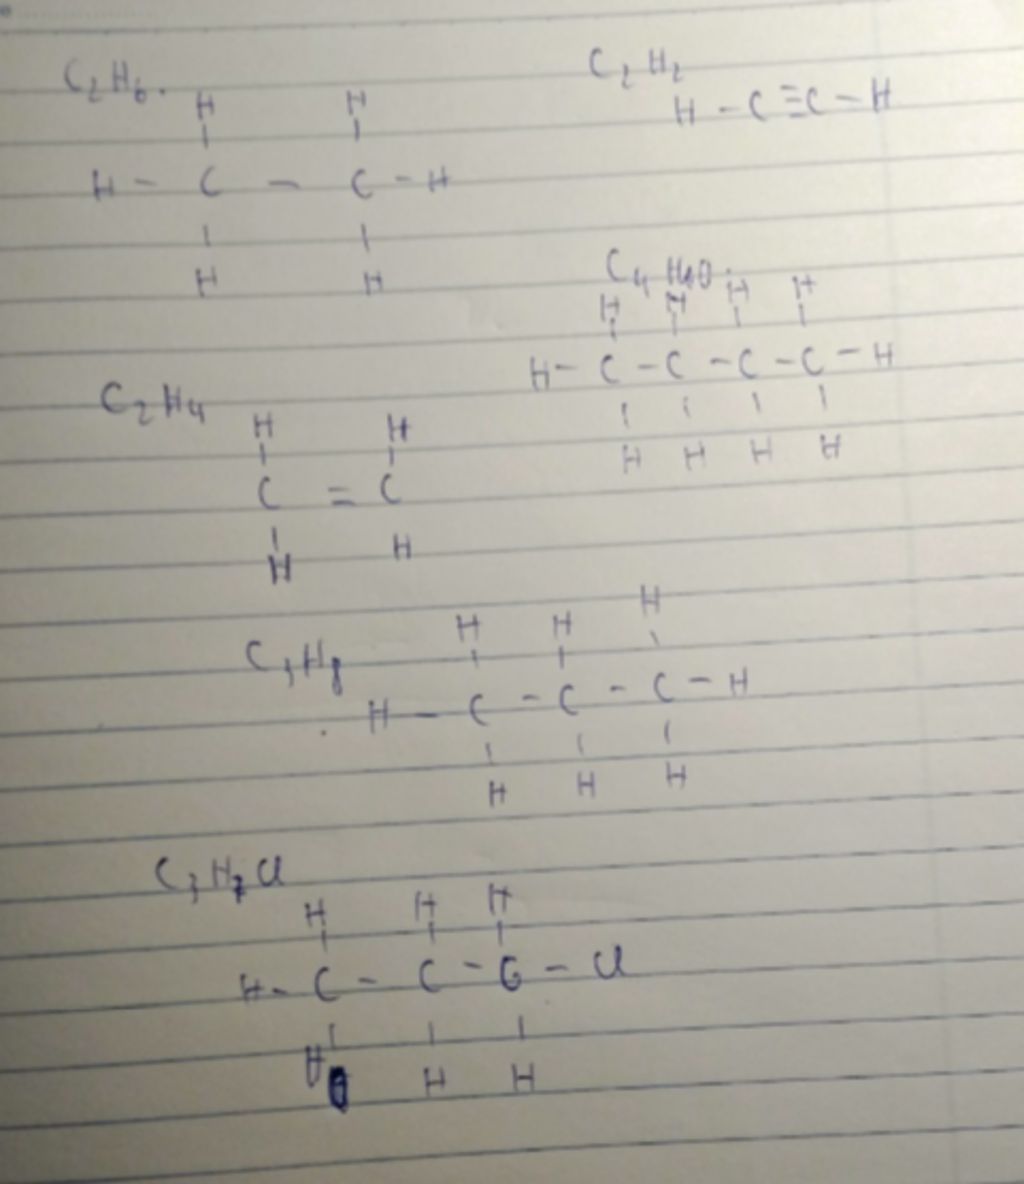 C2H6.
H H
H - C - C - H
H H
C2H2
H - C ≡ C - H
C4H10.
H H H H
H - C - C - C - C - H
H H H H
C2H4
H H
C = C
H H
C3H8
H H H
H - C - C - C - H
H H H
C3H7Cl
H H H
H - C - C - C - Cl
H H H